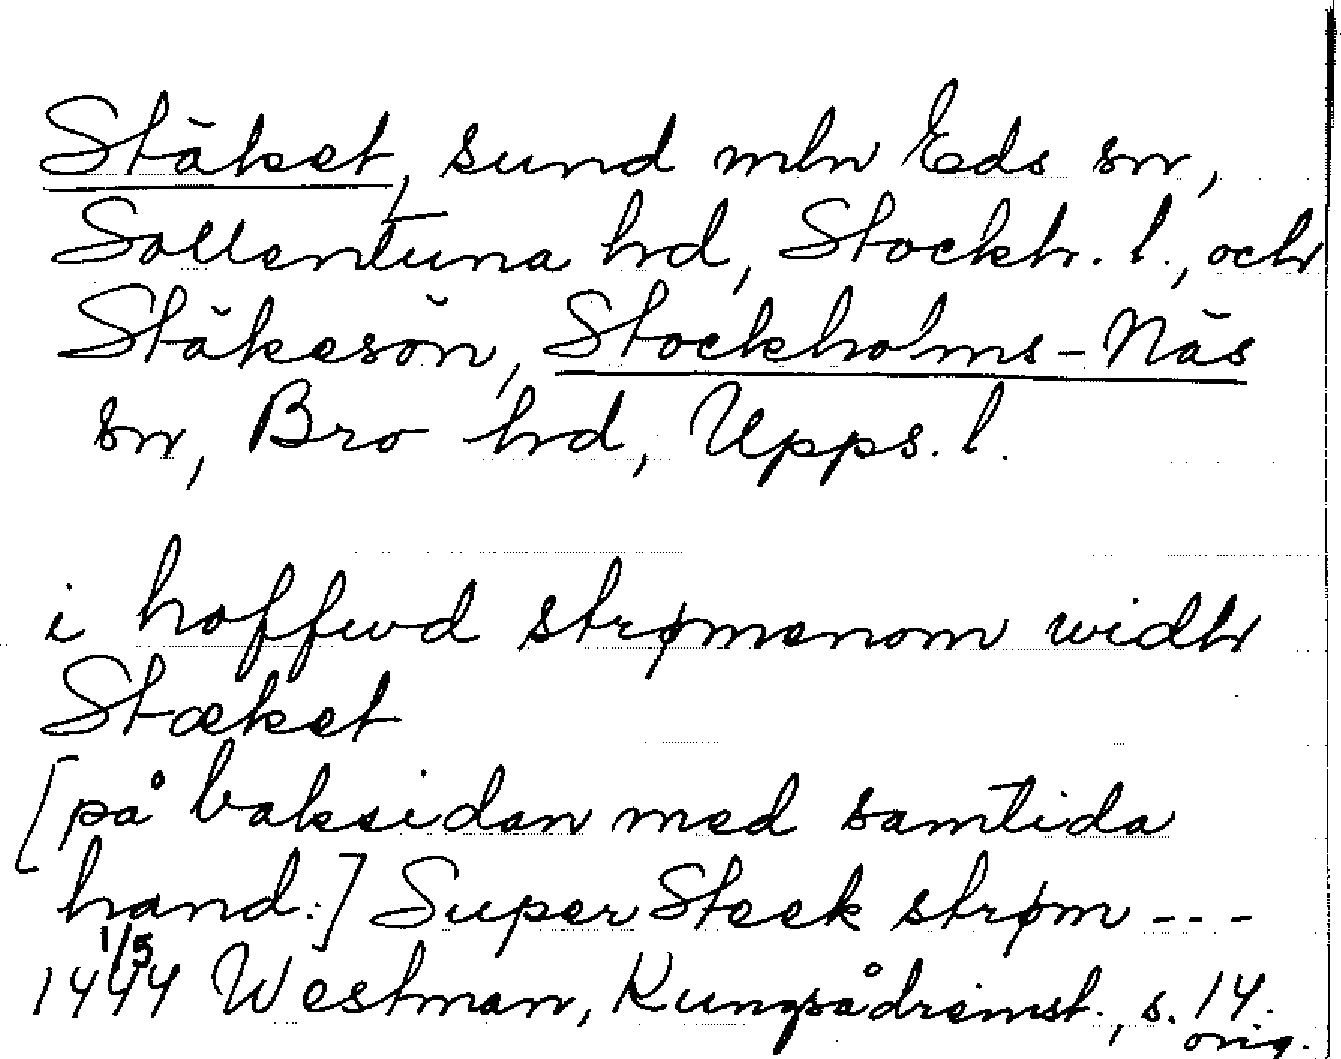 Stäket, sund mln Eds sn,
Sollentuna hd, Stockh. l., och
Stäkesön, Stockholms-Näs
sn, Bro hd, Upps. l.
i hoffwd strømenom widh
Stæket
[på baksidan med samtida
hand:] Super Steek strøm ---
1/5
1444 Westman, Kungsådreinst., s. 14.
orig.